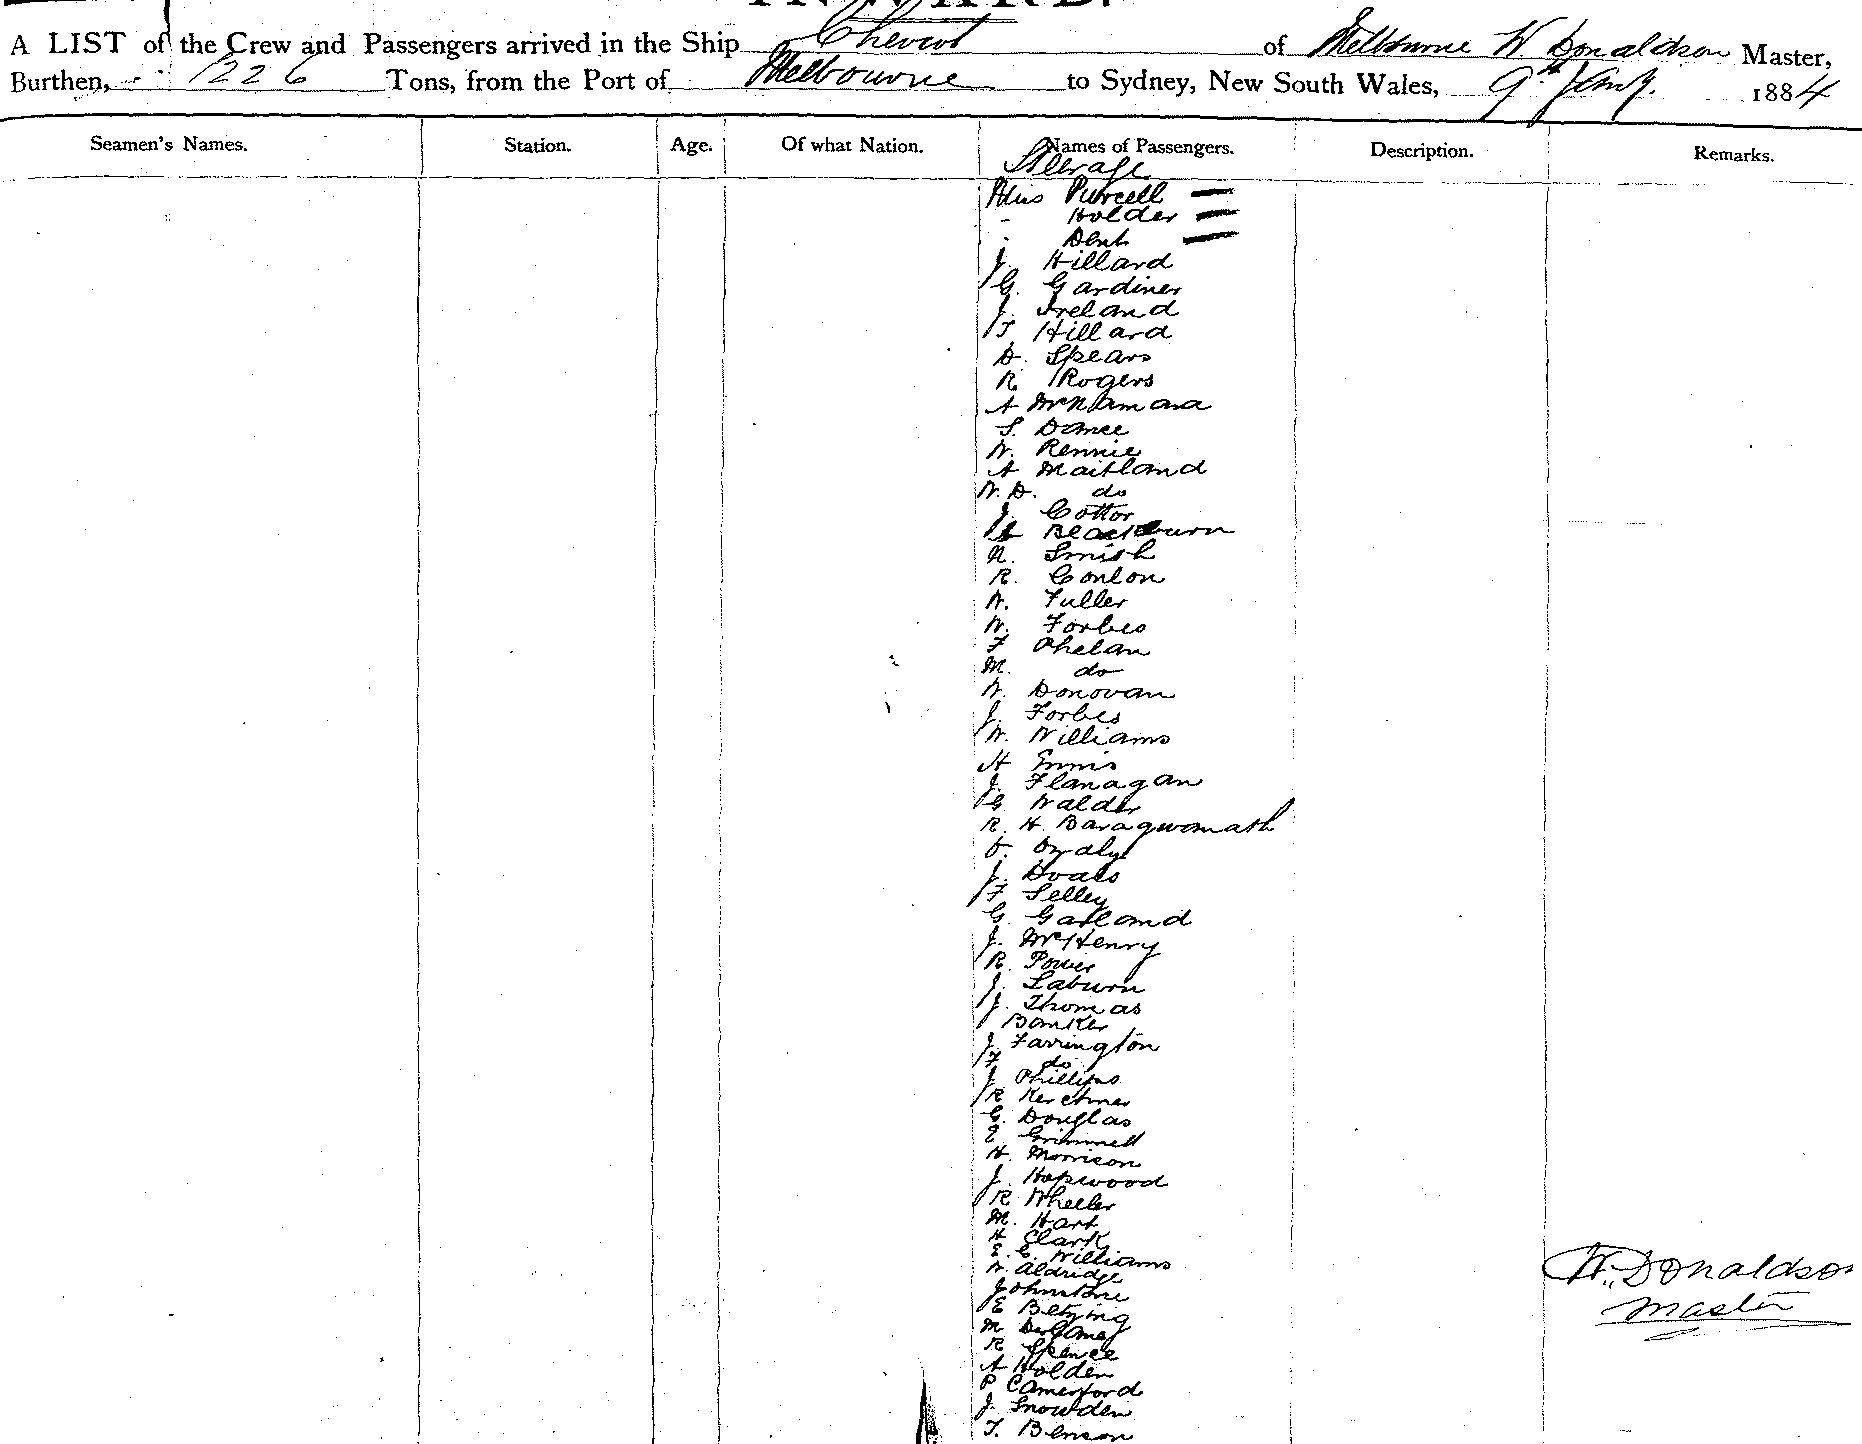 INWARD.
A LIST of the Crew and Passengers arrived in the Ship Cheviot of Melbourne W Donaldson Master,
Burthen, 1226 Tons, from the Port of Melbourne to Sydney, New South Wales, 9th Jany. 1884
Seamen's Names. Station. Age. Of what Nation. Names of Passengers. Description. Remarks.
Steerage
Miss Purcell
" Holder
" Dent
J. Hillard
G. Gardiner
J. Ireland
T Hillard
D. Spears
R Rogers
A McNamara
S. Dance
W. Rennie
A Maitland
W. D. do
J. Cottor
Blackburn
N. Smith
R. Conlon
W. Fuller
W. Forbes
F Phelan
M. do
W. Donovan
J. Forbes
W. Williams
H Ennis
J. Flanagan
G Walder
R. H. Baragwanath
O.
J.
F Selley
G. Garland
J. McHenry
R. Power
J. Laburn
J. Thomas
Banker
J. Farrington
F do
J. Phillips
R Kerchner
G. Douglas
E Grimmell
H. Morrison
J. Hopwood
R Wheeler
M. Hart
H Clark
E. C. Williams
W. Aldridge
Johnstone
E
M
R Spence
A Holden
P Camerford
J. Snowden
T. Benson
W. Donaldson
Master